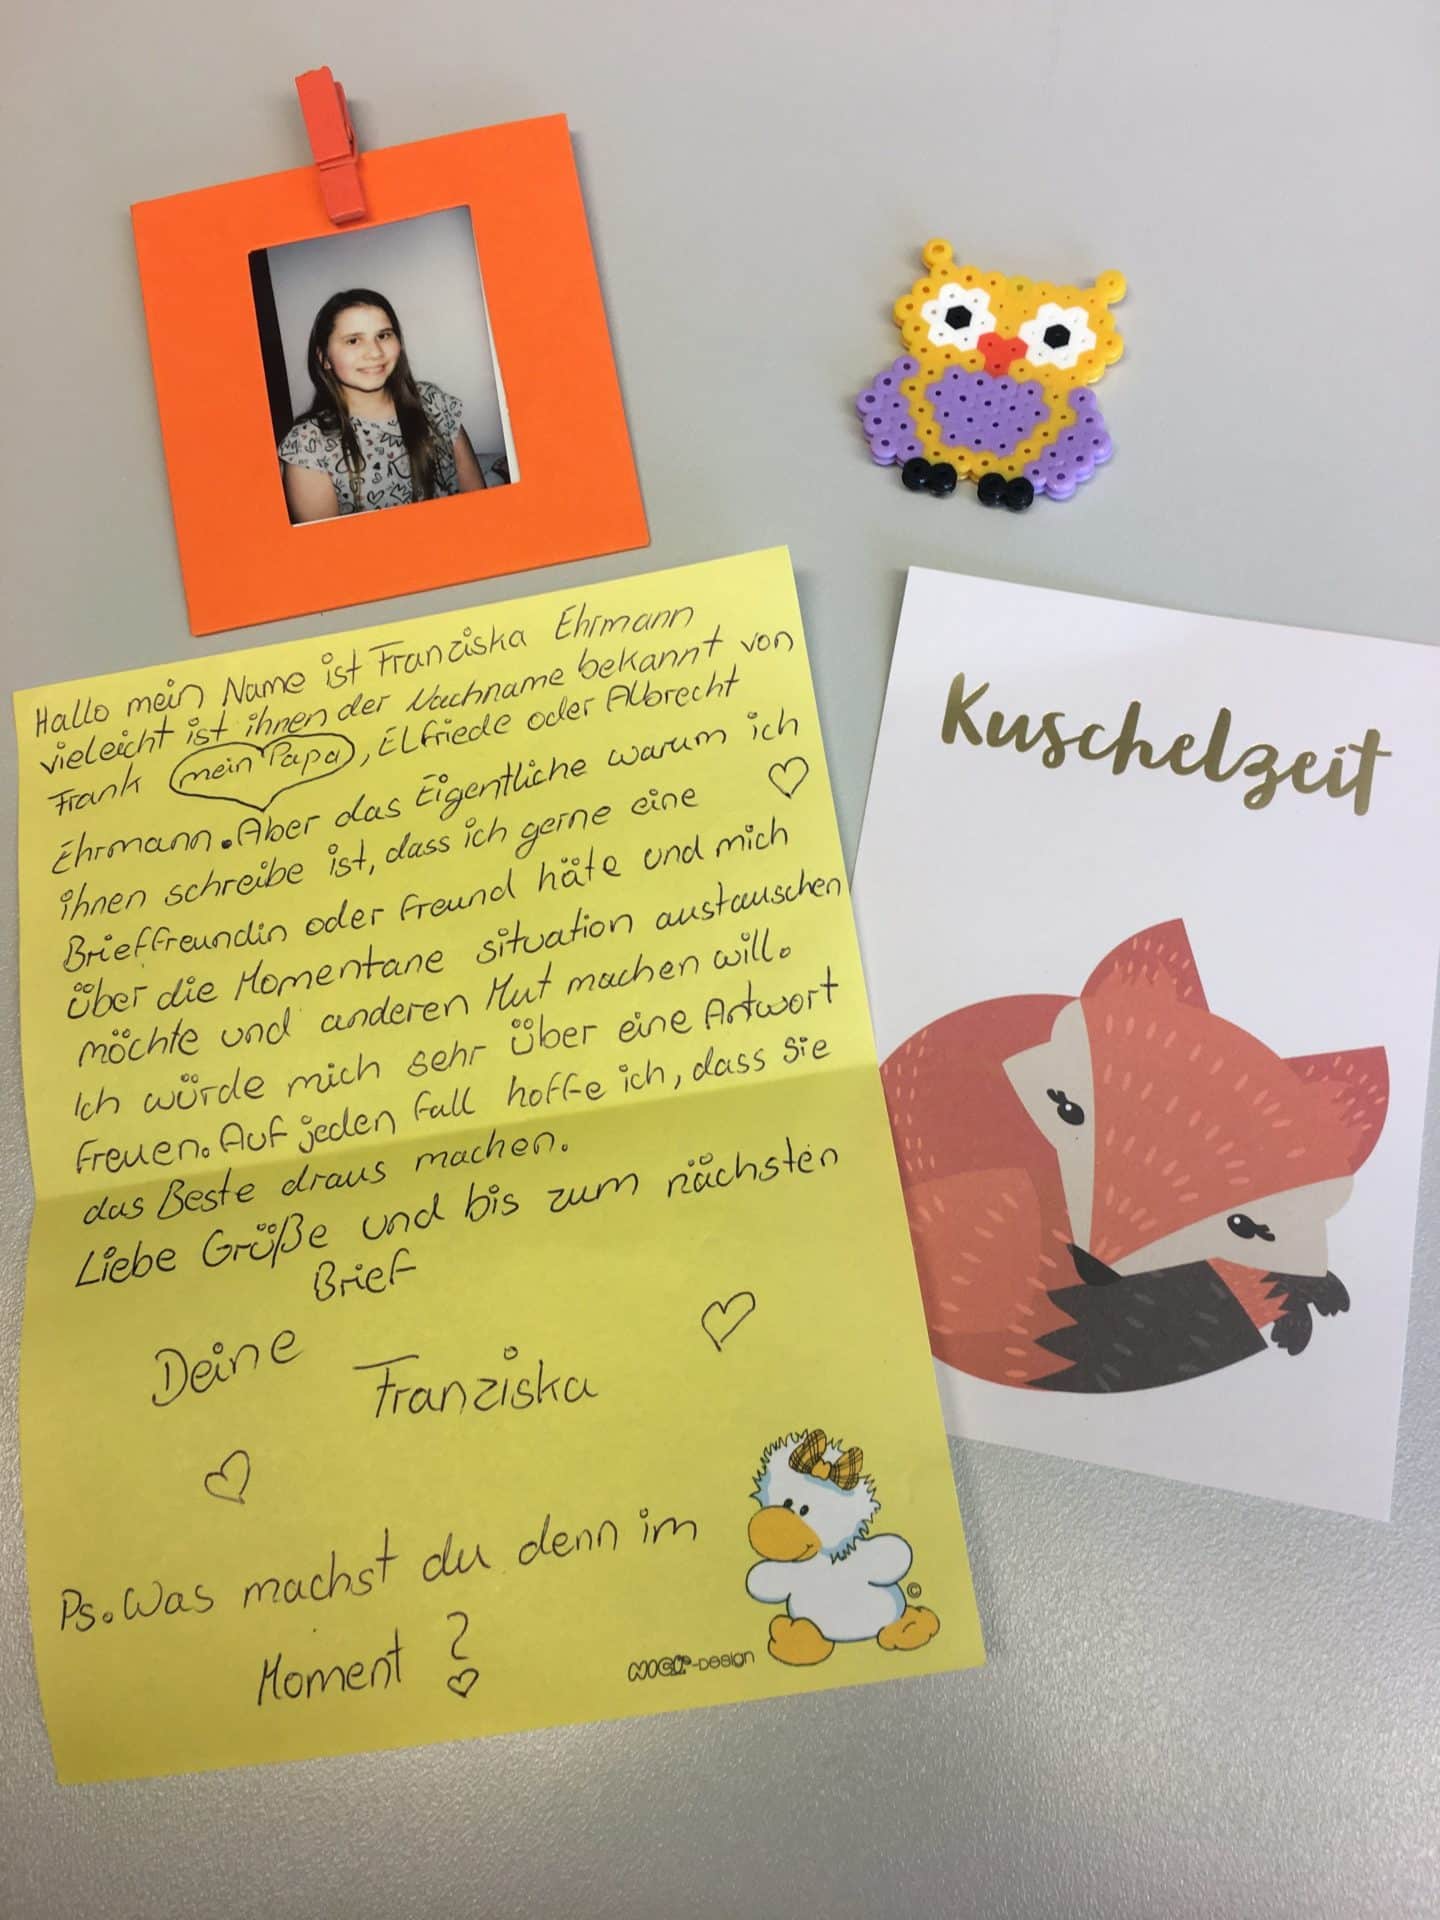 Hallo mein Name ist Franziska Ehrmann
vieleicht ist ihnen der Nachname bekannt von
Frank mein Papa, Elfriede oder Albrecht
Ehrmann. Aber das Eigentliche warum ich
ihnen schreibe ist, dass ich gerne eine
Brieffreundin oder Freund häte und mich
über die Momentane situation austauschen
möchte und anderen Mut machen will.
Ich würde mich sehr über eine Antwort
freuen. Auf jeden fall hoffe ich, dass sie
das Beste draus machen.
Liebe Größe und bis zum nächsten
Brief
Deine Franziska
Ps. Was machst du denn im
Moment ?
NICI-DESIGN
©
Kuschelzeit